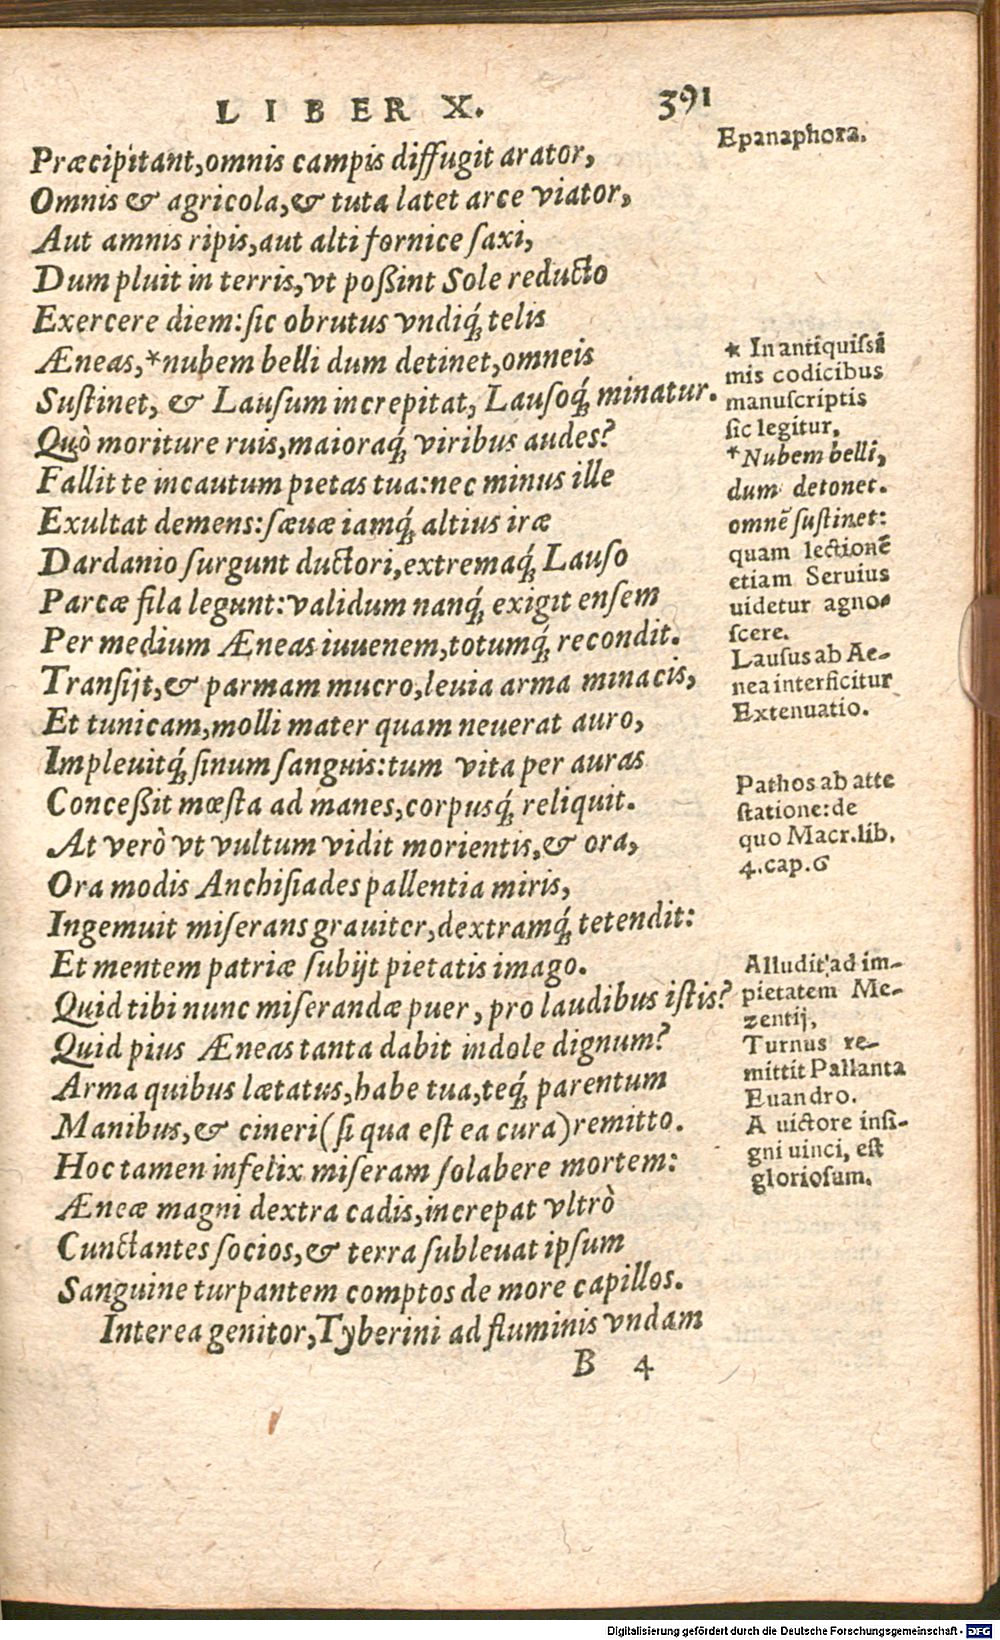 LIBER X. 391
Præcipitant,omnis campis diffugit arator,
Omnis & agricola,& tuta latet arce viator,
Aut amnis ripis,aut alti fornice ſaxi,
Dum pluit in terris,vt poßint Sole reducto
Exercere diem:ſic obrutus vndiq́; telis
Æneas,*nubem belli dum detinet,omneis
Suſtinet, & Lauſum increpitat, Lauſoq́; minatur.
Quò moriture ruis,maioraq́; viribus audes?
Fallit te incautum pietas tua:nec minus ille
Exultat demens:ſæuæ iamq́; altius iræ
Dardanio ſurgunt ductori,extremaq́; Lauſo
Parcæ fila legunt:validum nanq́; exigit enſem
Per medium Æneas iuuenem,totumq́; recondit.
Tranſijt,& parmam mucro,leuia arma minacis,
Et tunicam,molli mater quam neuerat auro,
Impleuitq́; ſinum ſanguis:tum vita per auras
Conceßit mœſta ad manes,corpusq́; reliquit.
At verò vt vultum vidit morientis,& ora,
Ora modis Anchiſiades pallentia miris,
Ingemuit miſerans grauiter,dextramq́; tetendit:
Et mentem patriæ ſubijt pietatis imago.
Quid tibi nunc miſerandæ puer, pro laudibus iſtis?
Quid pius Æneas tanta dabit indole dignum?
Arma quibus lætatus,habe tua,teq́; parentum
Manibus,& cineri(ſi qua eſt ea cura)remitto.
Hoc tamen infelix miſeram ſolabere mortem:
Æneæ magni dextra cadis,increpat vltrò
Cunctantes ſocios,& terra ſubleuat ipſum
Sanguine turpantem comptos de more capillos.
Interea genitor,Tyberini ad fluminis vndam
B 4
Epanaphora.
* In antiquiſsi
mis codicibus
manuſcriptis
ſic legitur,
*Nubem belli,
dum detonet.
omnē ſuſtinet:
quam lectionē
etiam Seruius
uidetur agno-
ſcere.
Lauſus ab Ae-
nea interficitur
Extenuatio.
Pathos ab atte
ſtatione:de
quo Macr.lib.
4.cap.6
Alludit ad im-
pietatem Me-
zentij,
Turnus re-
mittit Pallanta
Euandro.
A uictore inſi-
gni uinci, eſt
glorioſum.
Digitalisierung gefördert durch die Deutsche Forschungsgemeinschaft - DFG